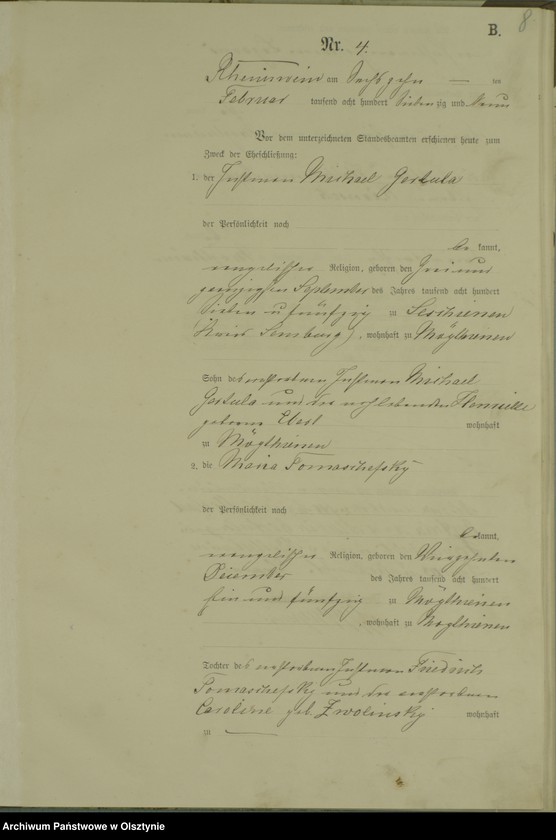 8
B.
Nr. 4.
Rheinswein am Sechszehn ten
Februar tausend acht hundert siebenzig und neun
Vor dem unterzeichneten Standesbeamten erschienen heute zum
Zweck der Eheschließung:
1. der Instmann Michael Gertula
der Persönlichkeit nach
be kannt,
evangelischer Religion, geboren den zwei und
zwanzigsten September des Jahres tausend acht hundert
sieben u fünfzig zu
(Kreis Sensburg), wohnhaft zu Mögthienen
Sohn des verstorbenen Instmann Michael
Gertula und der noch lebenden
geborene Ebert wohnhaft
zu Mögthienen
2. die Maria Tomaschefsky
der Persönlichkeit nach
be kannt,
evangelischer Religion, geboren den vierzehnten
Dezember des Jahres tausend acht hundert
ein und fünfzig zu Mögthienen
, wohnhaft zu Mögthienen
Tochter des verstorbenen Instmann Friedrich
Tomaschefsky und der verstorbenen
Caroline geb. Zwolinsky wohnhaft
zu
Archiwum Państwowe w Olsztynie